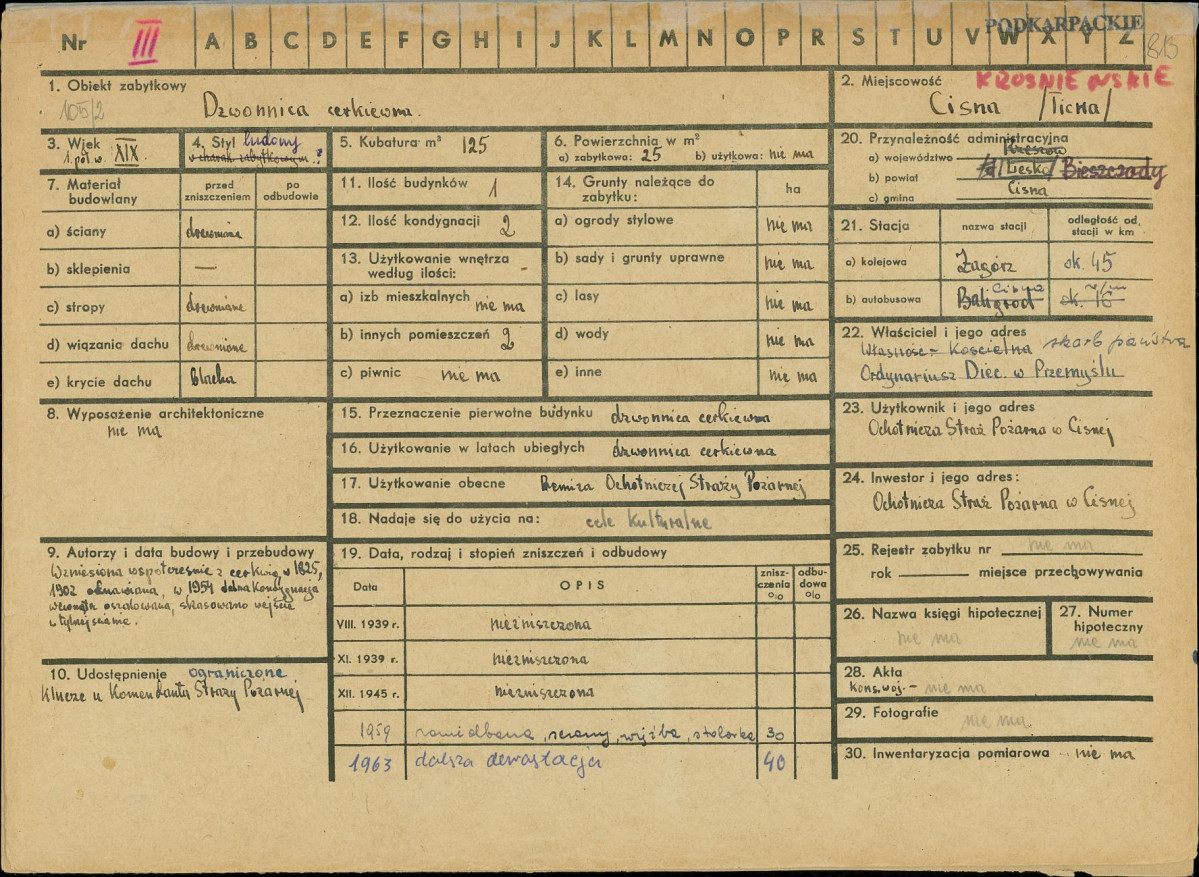 PODKARPACKIE
Nr III A B C D E F G H I J K L M N O P R S T U V W X Y Z
813
1. Obiekt zabytkowy
105/2
Dzwonnica cerkiewna.
2. Miejscowość KROŚNIEŃSKIE
Cisna /Ticha/
3. Wiek
1. poł. w. XIX.
4. Styl ludowy
w charak. zabytkowym. ?
5. Kubatura m³ 125
6. Powierzchnia w m²
a) zabytkowa: 25 b) użytkowa: nie ma
20. Przynależność administracyjna
a) województwo Rzeszów
b) powiat /Lesko/ Bieszczady
c) gmina Cisna
7. Materiał budowlany
przed zniszczeniem
po odbudowie
a) ściany drewniane
b) sklepienia —
c) stropy drewniane
d) wiązania dachu drewniane
e) krycie dachu blacha
11. Ilość budynków 1
12. Ilość kondygnacji 2
13. Użytkowanie wnętrza
według ilości:
a) izb mieszkalnych nie ma
b) innych pomieszczeń 2
c) piwnic nie ma
14. Grunty należące do
zabytku:
ha
a) ogrody stylowe nie ma
b) sady i grunty uprawne nie ma
c) lasy nie ma
d) wody nie ma
e) inne nie ma
21. Stacja
nazwa stacji
odległość od
stacji w km
a) kolejowa Zagórz ok. 45
Cisna
b) autobusowa Baligród ok. 16
22. Właściciel i jego adres
Własność - Kościelna skarb państwa
Ordynariusz Diec. w Przemyślu
8. Wyposażenie architektoniczne
nie ma
15. Przeznaczenie pierwotne budynku dzwonnica cerkiewna
16. Użytkowanie w latach ubiegłych dzwonnica cerkiewna
17. Użytkowanie obecne Remiza Ochotniczej Straży Pożarnej
18. Nadaje się do użycia na: cele kulturalne
23. Użytkownik i jego adres
Ochotnicza Straż Pożarna w Cisnej
24. Inwestor i jego adres:
Ochotnicza Straż Pożarna w Cisnej
9. Autorzy i data budowy i przebudowy
Wzniesiona współcześnie z cerkwią w 1825,
1902 odnawiana, w 1954 dolna kondygnacja
wewnątrz oszalowana, skasowano wejście
w tylnej ścianie.
10. Udostępnienie ograniczone
Klucze u Komendanta Straży Pożarnej
19. Data, rodzaj i stopień zniszczeń i odbudowy
Data OPIS
znisz-
czenia
%
odbu-
dowa
%
VIII. 1939 r. niezniszczona
XI. 1939 r. niezniszczona
XII. 1945 r. niezniszczona
1959 zaniedbana, ściany, więźba, stolarka 30
1963 dalsza dewastacja 40
25. Rejestr zabytku nr nie ma
rok miejsce przechowywania
26. Nazwa księgi hipotecznej
nie ma
27. Numer
hipoteczny
nie ma
28. Akta
Kons. woj. - nie ma
29. Fotografie
nie ma
30. Inwentaryzacja pomiarowa - nie ma